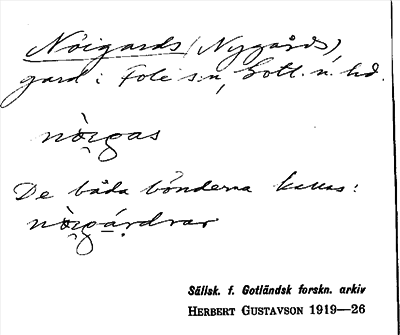 Nöigards (Nygårds),
gard i Fole s:n, Gotl. n. hd.
nọ̈i̯gas
De båda bönderna kallas:
nọ̈i̯gárdrar
Sällsk. f. Gotländsk forskn. arkiv
HERBERT GUSTAVSON 1919—26